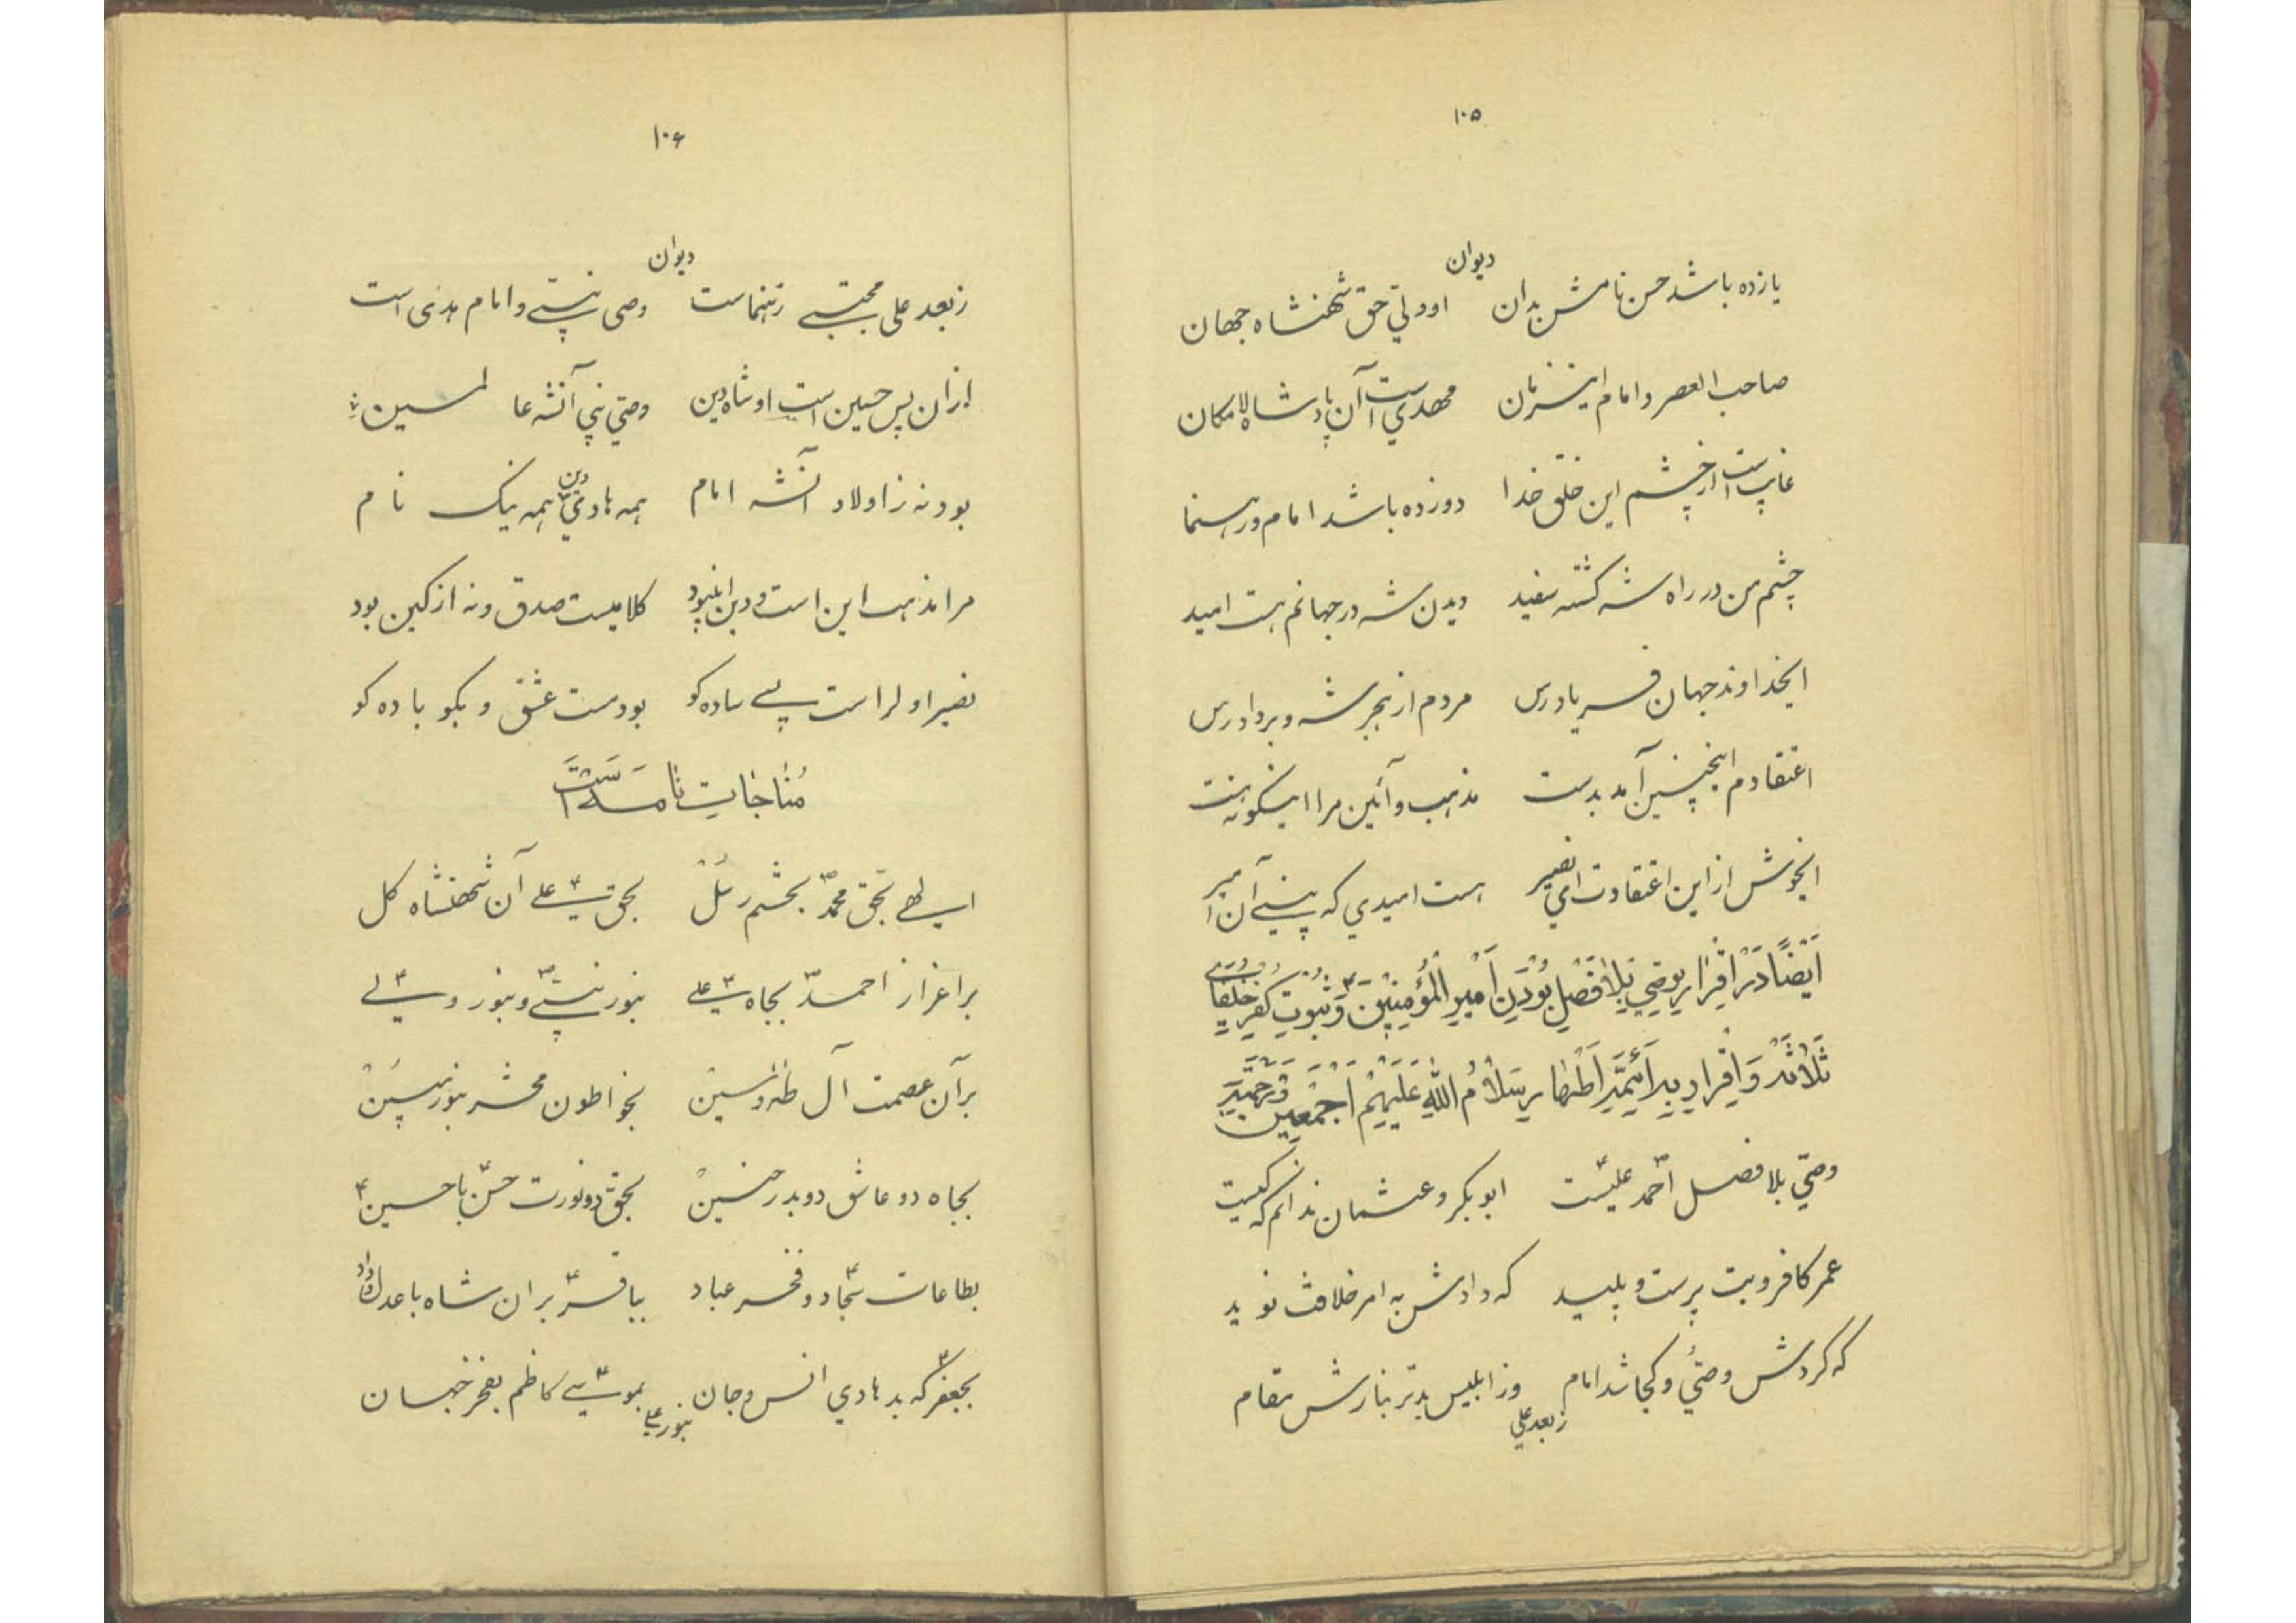 ۱۰۵
دیوان
یازده باشد حسن نامش بدان اوولیّ حق شهنشاه جهان
صاحب العصر و امام اینزمان مهدیست آن پادشاه لامکان
غایب است از چشم این خلق خدا دوزده باشد امام و رهنما
چشم من در راه شه گشته سفید دیدن شه در جهانم هست امید
ایخداوند جهان فریادرس مردم از هجر شه و برداد رس
اعتقادم اینچنین آمد بدست مذهب و آئین مرا اینگونه هست
ایخوش از این اعتقادت ای نصیر هست امیدی که بینی آن امیر
اَیْضًا دَرْ اِقْرارِ بوَصِیِ بَلافَصْلِ بُوْدَنِ اَمْیرِ الْمُؤمِنینَ ۴ وَ ثُبُوتِ کُفْرِ خُلَفایِ
ثَلاثَه وَ اِقْرارِ بِه اَئِمَّهِ اَطْهار سَلامُ اللهِ عَلَیْهِمْ اَجْمَعین
وصیّ بلا فصل احمد علیست ابوبکر و عثمان ندانم که کیست
عمر کافر و بت پرست و پلید که دادش به امر خلافت نوید
که کردش وصیّ و کجا شد امام وز ابلیس بدتر بنارش مقام
زبعد علی
۱۰۶
دیوان
زبعد علی مجتبی رهنماست وصی نبیّ و امام هدی است
ازان پس حسین است او شاه دین وصیّ نبی آنشه عالمین
بودنه ز اولاد آنشه امام همه هادی دین همه نیک نام
مرا مذهب این است و دین این بود کلامیست صدق و نه از کین بود
نصیر اولرا ست پی ساده کو بودمست عشق و بکو باده کو
مُناجات نامه است
الهی بحق محمّدؐ بچشم رسل بحق علی ۴ آن شهنشاه کل
براعزاز احمدؐ بجاه علی ۴ بنور نبیّ و بنور ولی
برآن عصمت آل طه و یسین بخواطون محشر بنور مبین
بجاه دو عاشق دو بدر حنین بحق دو نورت حسنؑ با حسین ۴
بطاعات سجّاد و فخر عباد بباقرؑ بران شاه با عدل و داد
بجعفرؑ که بد هادی انس و جان بموسیؑ کاظم بفخر جهان
بنور علی